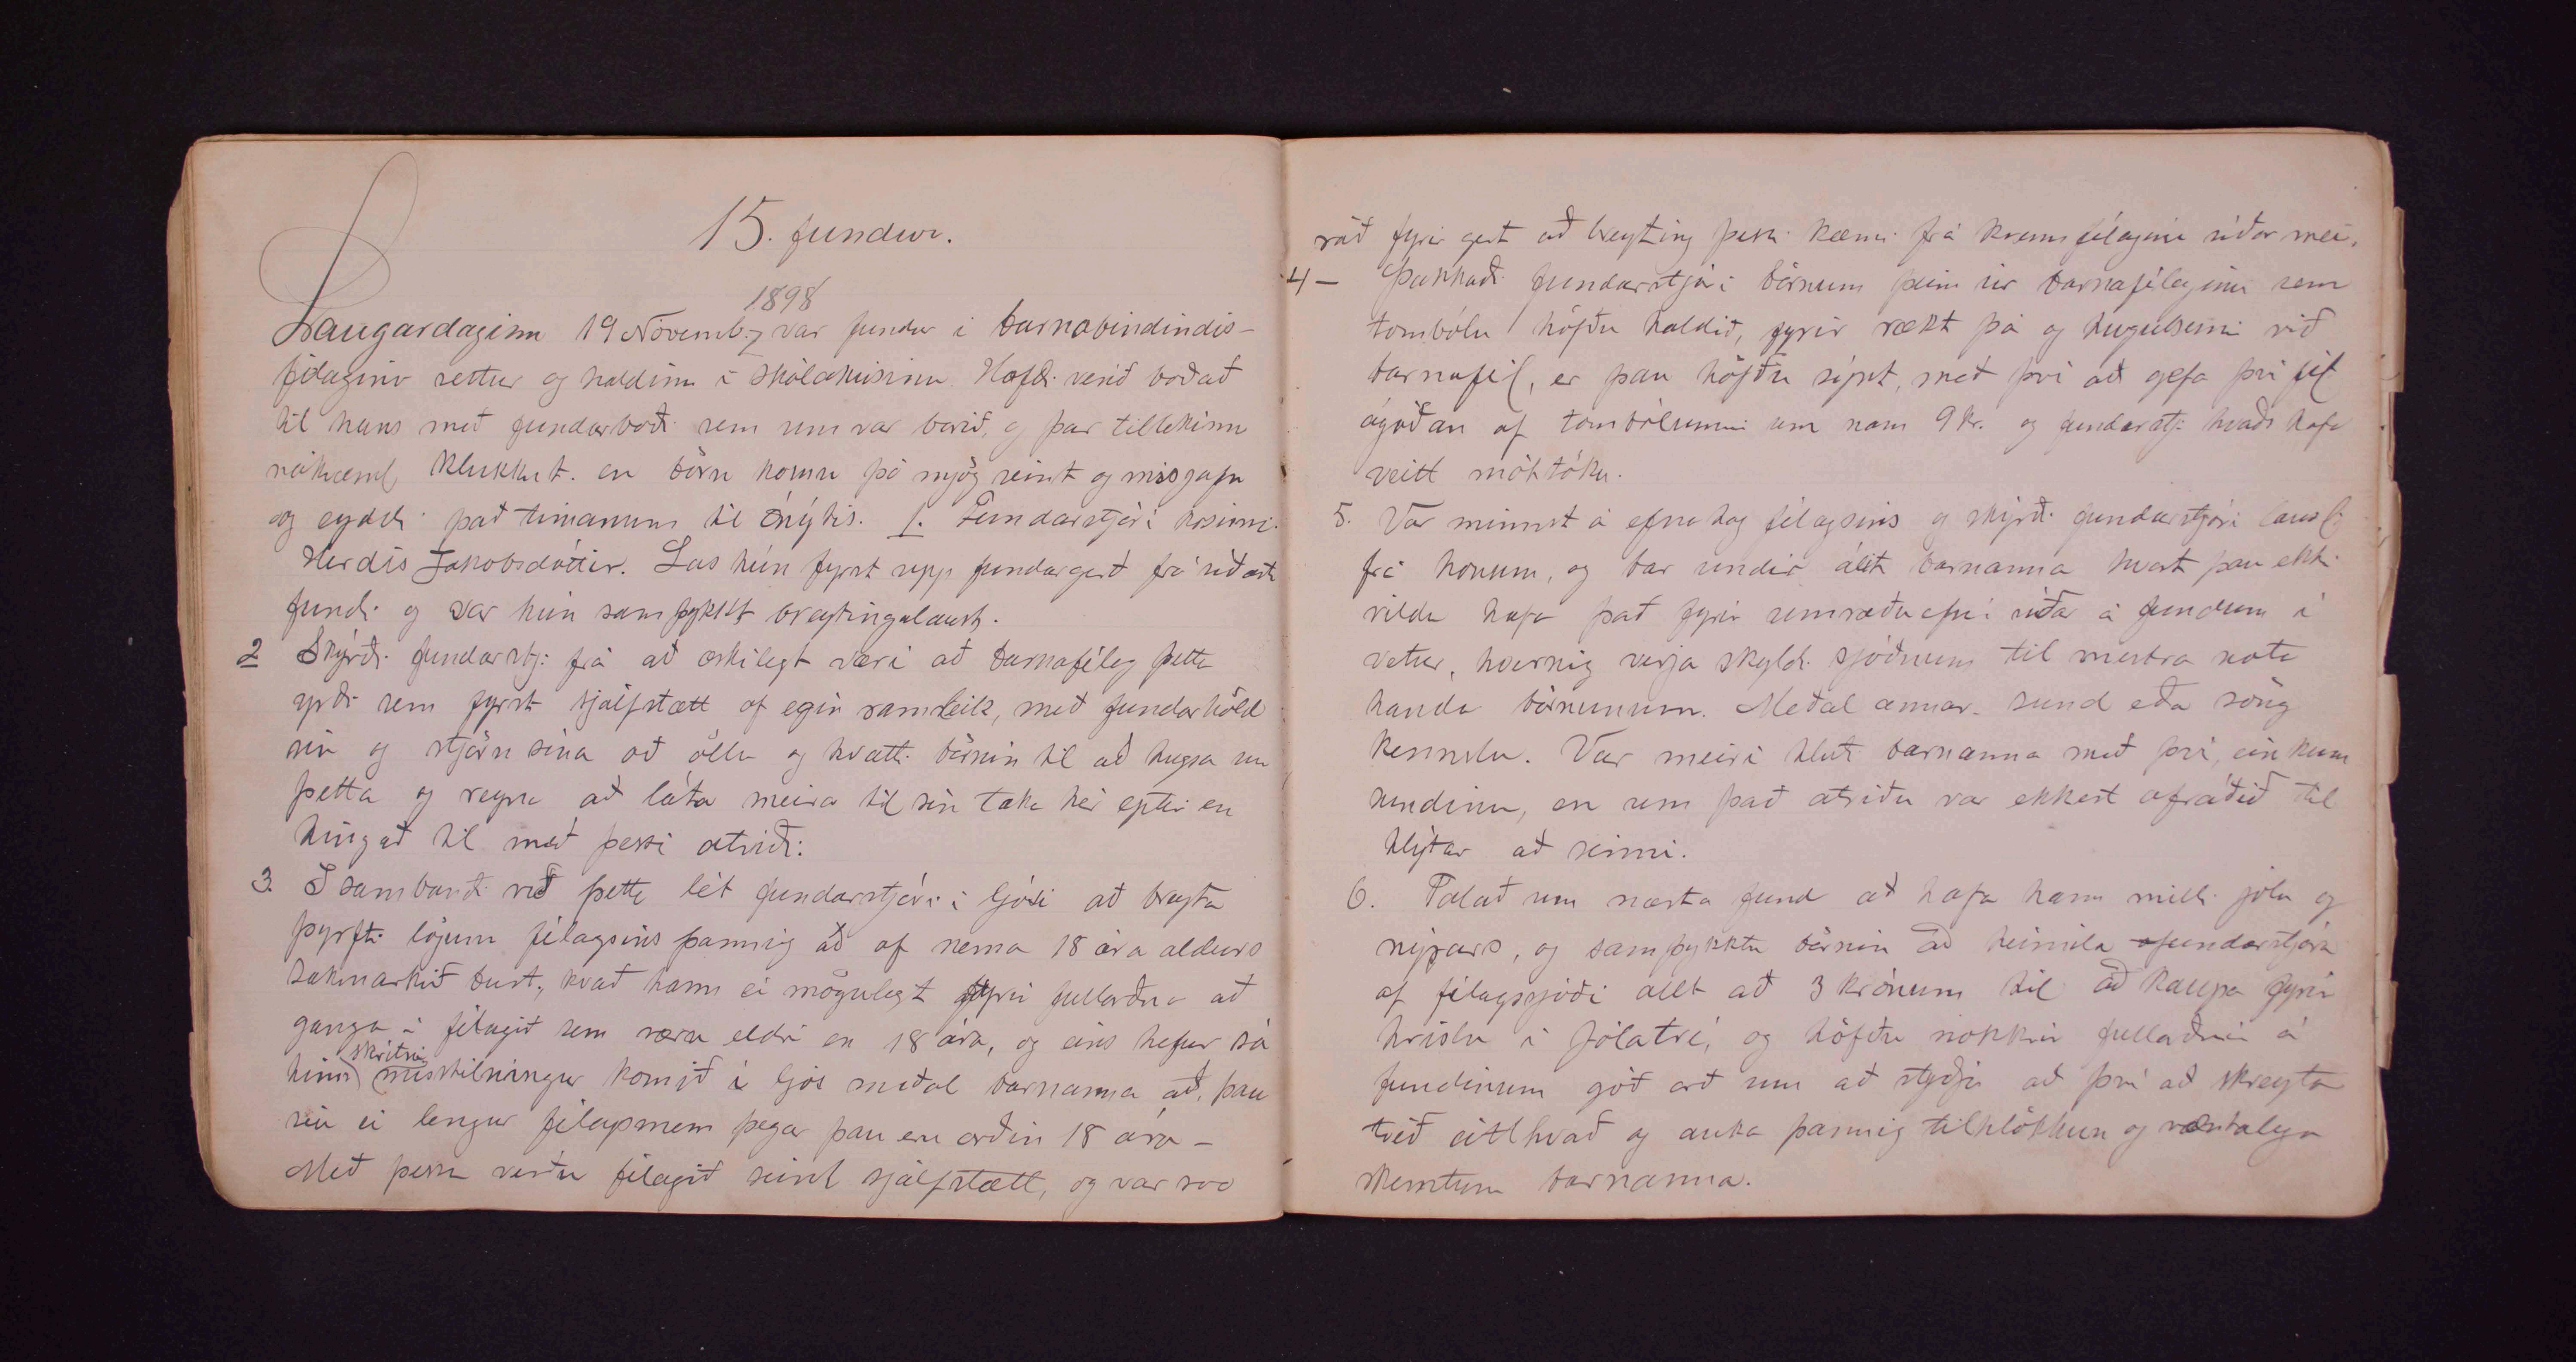 15. fundur.
1898
Laugardaginn 19 Novemb. var fundur i barnabindindis-
félaginu settur og haldinn í skólahúsinu. Hafði verið boðað
til hans með fundarboði sem um var borið, og þar tiltekinn
nákvæml klukkut. en börn komu þó mjög seint og misjafn
og eyddi það tímanum til ónýtis. 1. Fundarstjóri kosinn:
Herdís Jakobsdóttir. Las hún fyrst upp fundargerð frá síðasta
fundi og var hún samþykkt breytingalaust.
2 Skýrði fundarstj: frá að æskilegt væri að barnafélag þetta
yrði sem fyrst sjálfstætt af egin ramleik, með fundarhöld
sín og stjórn sína að öllu og hvatti börnin til að hugsa um
þetta og reyna að láta meira til sín taka hér eptir en
hingað til með þessi atriði:
3. Í sambandi við þetta lét fundarstjóri í ljósi að breyta
þyrfti lögum félagsins þannig að af nema 18 ára aldurs
takmarkið burt, kvað hann ei mögulegt fyrir fullorðna að
ganga í félagið sem væru eldri en 18 ára, og eins hefur sá
skrítni
hinn misskilningur komið í ljós meðal barnanna að, þau
séu ei lengur félagsmenn þegar þau eru orðin 18 ára -
Með þessu verður félagið seint sjálfstætt, og var svo
ráð fyrir gert að breyting þessi kæmi frá kvennfélaginu síðar mei.
4 - Þakkaði fundarstjóri börnum þeim úr barnafélaginu sem
tombólu höfðu haldið, fyrir rækt þá og hugulsemi við
barnafél, er þau höfðu sýnt, með því að gefa því fél
ágóðan af tombólunni um nam 9 kr. og fundarstj: kvaðs hafa
veitt móttöku.
5. Var minnst á efnahag félagsins og skýrði fundarstjóri lausl:
frá honum, og bar undir álit barnanna hvort þau ekki
vildu hafa það fyrir umræðuefni síðar á fundum í
vetur, hvernig verja skyldi sjóðnum til mestra nota
handa börnunum. Meðal annar. sund eða söng
kennslu. Var meiri hluti barnanna með því, einkum
sundinu, en um það atriðu var ekkert afráðið til
hlýtar að sinni.
6. Talað um næsta fund að hafa hann milli jóla og
nýjárs, og samþykktu börnin að heimila fundarstjóra
af félagssjóði allt að 3 krónum til að kaupa fyrir
hríslu í Jólatré, og höfðu nokkrir fullorðnir á
fundinum góð orð um að styðja að því að skreyta
tréð eitthvað og auka þannig tilhlökkun og væntalega
skemtum barnanna.